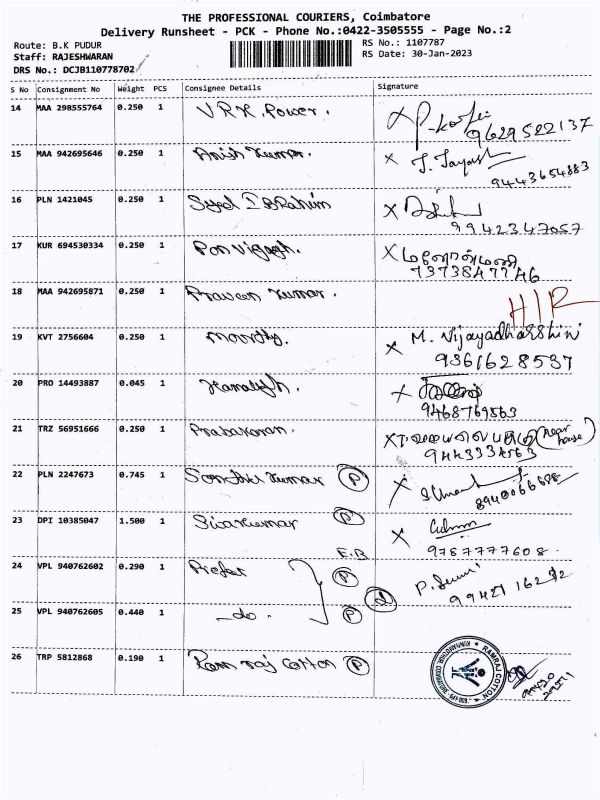 THE PROFESSIONAL COURIERS, Coimbatore
Delivery Runsheet - PCK - Phone No.:0422-3505555 - Page No.:2
Route: B.K PUDUR RS No.: 1107787
Staff: RAJESHWARAN RS Date: 30-Jan-2023
DRS No.: DCJB110778702
S No Consignment No Weight PCS Consignee Details Signature
14 MAA 298555764 0.250 1 V.R.K. Power.
9629522137
15 MAA 942695646 0.250 1 Anish Kumar.
9443654883
16 PLN 1421045 0.250 1 Syed IBRahim
9942347057
17 KUR 694530334 0.250 1 Pon
7373847746
18 MAA 942695871 0.250 1 Praveen Kumar.
HIR
19 KVT 2756604 0.250 1 moorthy. M. Vijayadharshini
9361628537
20 PRO 14493887 0.045 1
9468769563
21 TRZ 56951666 0.250 1 Prabakaran. (Near house)
9443334563
22 PLN 2247673 0.745 1 Kumar P
8940066688
23 DPI 10385047 1.500 1 Sivakumar P
9787777608
E.B
24 VPL 940762602 0.290 1 P
25 VPL 940762605 0.440 1 -do. P
26 TRP 5812868 0.190 1 Ram raj cotton P RAMRAJ COTTON